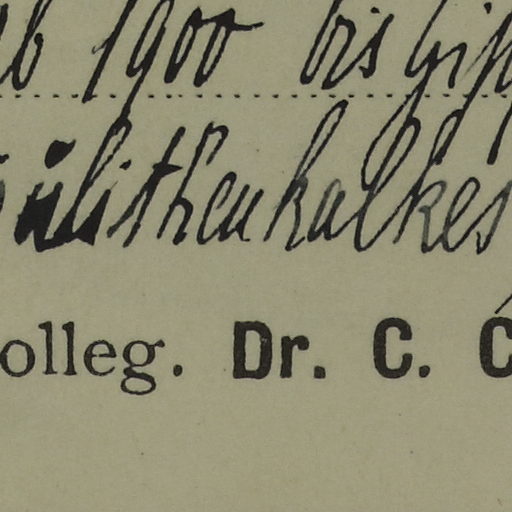 ab 1900 bis Gip
ulithenkalkes
olleg. Dr. C. C